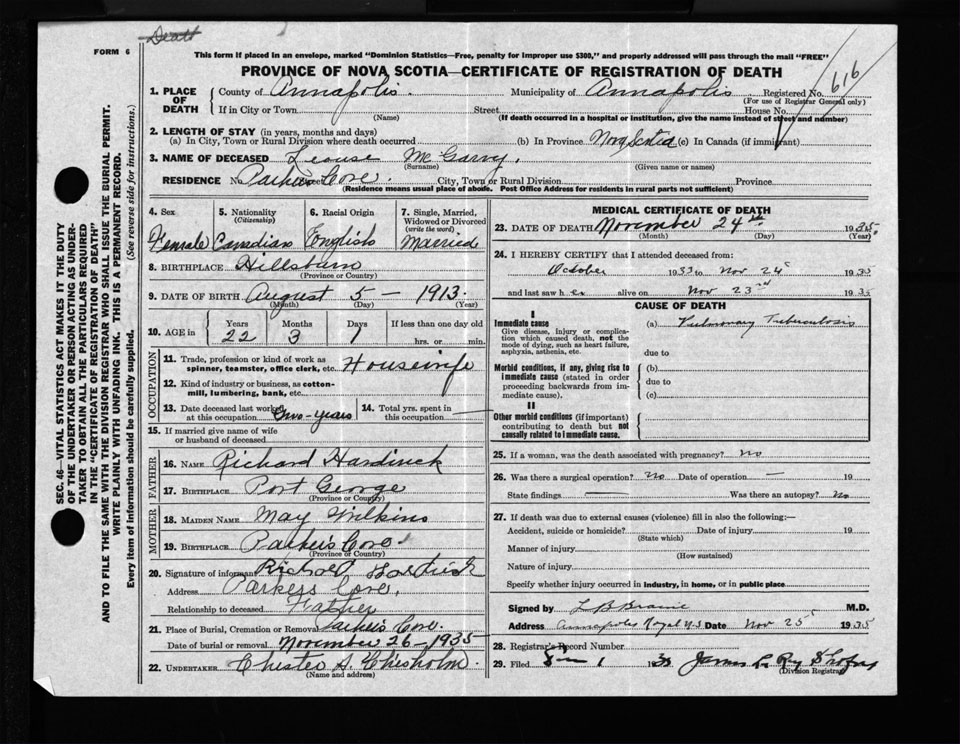 Death
FORM 6
This form if placed in an envelope, marked "Dominion Statistics—Free, penalty for improper use $300," and properly addressed will pass through the mail "FREE"
616
PROVINCE OF NOVA SCOTIA—CERTIFICATE OF REGISTRATION OF DEATH
1. PLACE OF DEATH County of Annapolis. Municipality of Annapolis Registered No.
(For use of Registrar General only)
If in City or Town Street House No.
(Name) (If death occurred in a hospital or institution, give the name instead of street and number)
2. LENGTH OF STAY (in years, months and days)
(a) In City, Town or Rural Division where death occurred (b) In Province Nova Scotia (c) In Canada (if immigrant)
3. NAME OF DECEASED Leouse McGarvy.
(Surname) (Given name or names)
RESIDENCE No. Parkers Cove. Street City, Town or Rural Division Province
(Residence means usual place of abode. Post Office Address for residents in rural parts not sufficient)
SEC. 46—VITAL STATISTICS ACT MAKES IT THE DUTY
OF THE UNDERTAKER OR PERSON ACTING AS UNDER-
TAKER TO OBTAIN ALL THE PARTICULARS REQUIRED
IN THE "CERTIFICATE OF REGISTRATION OF DEATH"
AND TO FILE THE SAME WITH THE DIVISION REGISTRAR WHO SHALL ISSUE THE BURIAL PERMIT.
WRITE PLAINLY WITH UNFADING INK. THIS IS A PERMANENT RECORD.
Every item of information should be carefully supplied. (See reverse side for instructions.)
4. Sex 5. Nationality 6. Racial Origin 7. Single, Married,
(Citizenship) Widowed or Divorced
(write the word)
Female Canadian English Married
8. BIRTHPLACE Hillsburn
(Province or Country)
9. DATE OF BIRTH August 5 – 1913.
(Month) (Day) (Year)
10. AGE in Years Months Days If less than one day old
22 3 1 hrs. or min.
OCCUPATION
11. Trade, profession or kind of work as
spinner, teamster, office clerk, etc. Housewife
12. Kind of industry or business, as cotton-
mill, lumbering, bank, etc.
13. Date deceased last worked 14. Total yrs. spent in
at this occupation two-years this occupation
15. If married give name of wife
or husband of deceased
FATHER
16. NAME Richard Hardwick
17. BIRTHPLACE Port George
(Province or Country)
MOTHER
18. MAIDEN NAME May Wilkins
19. BIRTHPLACE Parkers Cove.
(Province or Country)
20. Signature of informant Richard Hardwick
Address Parkers Cove,
Relationship to deceased Father
21. Place of Burial, Cremation or Removal Parkers Cove.
Date of burial or removal November 26 – 1935
22. UNDERTAKER Chester A. Chesholm.
(Name and address)
MEDICAL CERTIFICATE OF DEATH
23. DATE OF DEATH November 24th 1935
(Month) (Day) (Year)
24. I HEREBY CERTIFY that I attended deceased from:
October 1933 to Nov 24th 1935
and last saw her alive on Nov 23rd 1935
CAUSE OF DEATH
I
Immediate cause (a) Pulmonary Tuberculosis
Give disease, injury or complica-
tion which caused death, not the
mode of dying, such as heart failure,
asphyxia, asthenia, etc. due to
Morbid conditions, if any, giving rise to (b)
immediate cause (stated in order due to
proceeding backwards from im-
mediate cause). (c)
II
Other morbid conditions (if important)
contributing to death but not
causally related to immediate cause.
25. If a woman, was the death associated with pregnancy? No
26. Was there a surgical operation? No Date of operation — 19
State findings — Was there an autopsy? No
27. If death was due to external causes (violence) fill in also the following:—
Accident, suicide or homicide? Date of injury 19
(State which)
Manner of injury
(How sustained)
Nature of injury
Specify whether injury occurred in industry, in home, or in public place
Signed by L B Braine M.D.
Address Annapolis Royal N.S Date Nov 25th 1935
28. Registrar's Record Number
29. Filed 1 James
(Division Registrar)